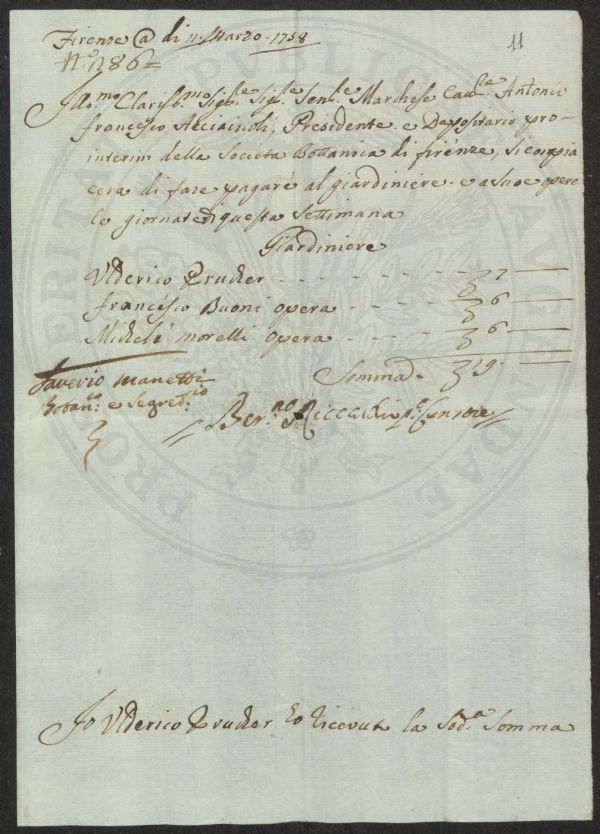 Firenze @ di 11. Marzo. 1758
11
N.º 286=
Ill.mo Clariss.mo Sig.re Sig.re Sen.re Marchese Cav.re Antonio
francesco Acciaiuoli, Presidente e Depositario pro-
interim della Società Bottanica di firenze, si compia
cera di fare pagare al giardiniere e a sue opere
le giornate di questa Settimana
Giardiniere
Ulderico Prucker - - - - - - - 7
francesco Buoni opera - - - - 6
Michele morelli opera - - - - 6
Somma - 19
Saverio Manetti
Botan.co e Segret.rio
Ber.no Riccardi Censore
Io Ulderico Prucker ho ricevuto la Sod.a Somma
PUBLICAE